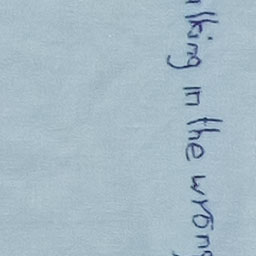 lking in the wrong